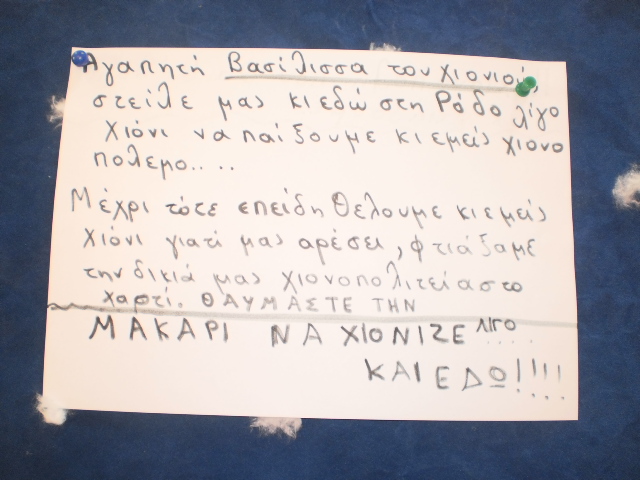 Αγαπητή Βασίλισσα του χιονιού,
στείλε μας κι εδώ στη Ρόδο λίγο
χιόνι να παίξουμε κι εμείς χιονο
πόλεμο....
Μέχρι τότε επείδη θέλουμε κι εμείς
χιόνι γιατί μας αρέσει, φτιάξαμε
την δικιά μας χιονοπολιτεία στο
χαρτί. ΘΑΥΜΑΣΤΕ ΤΗΝ
ΜΑΚΑΡΙ ΝΑ ΧΙΟΝΙΖΕ ΛΙΓΟ....
ΚΑΙ ΕΔΩ!!!!